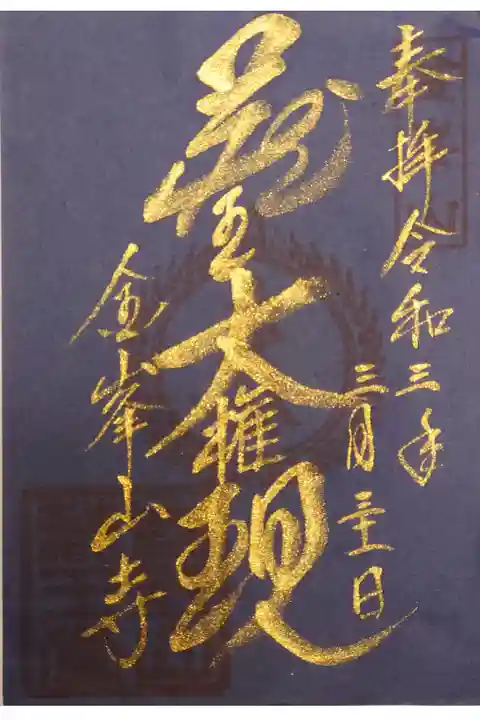 奉拝 令和三年
三月
蔵王大権現
金峯山寺